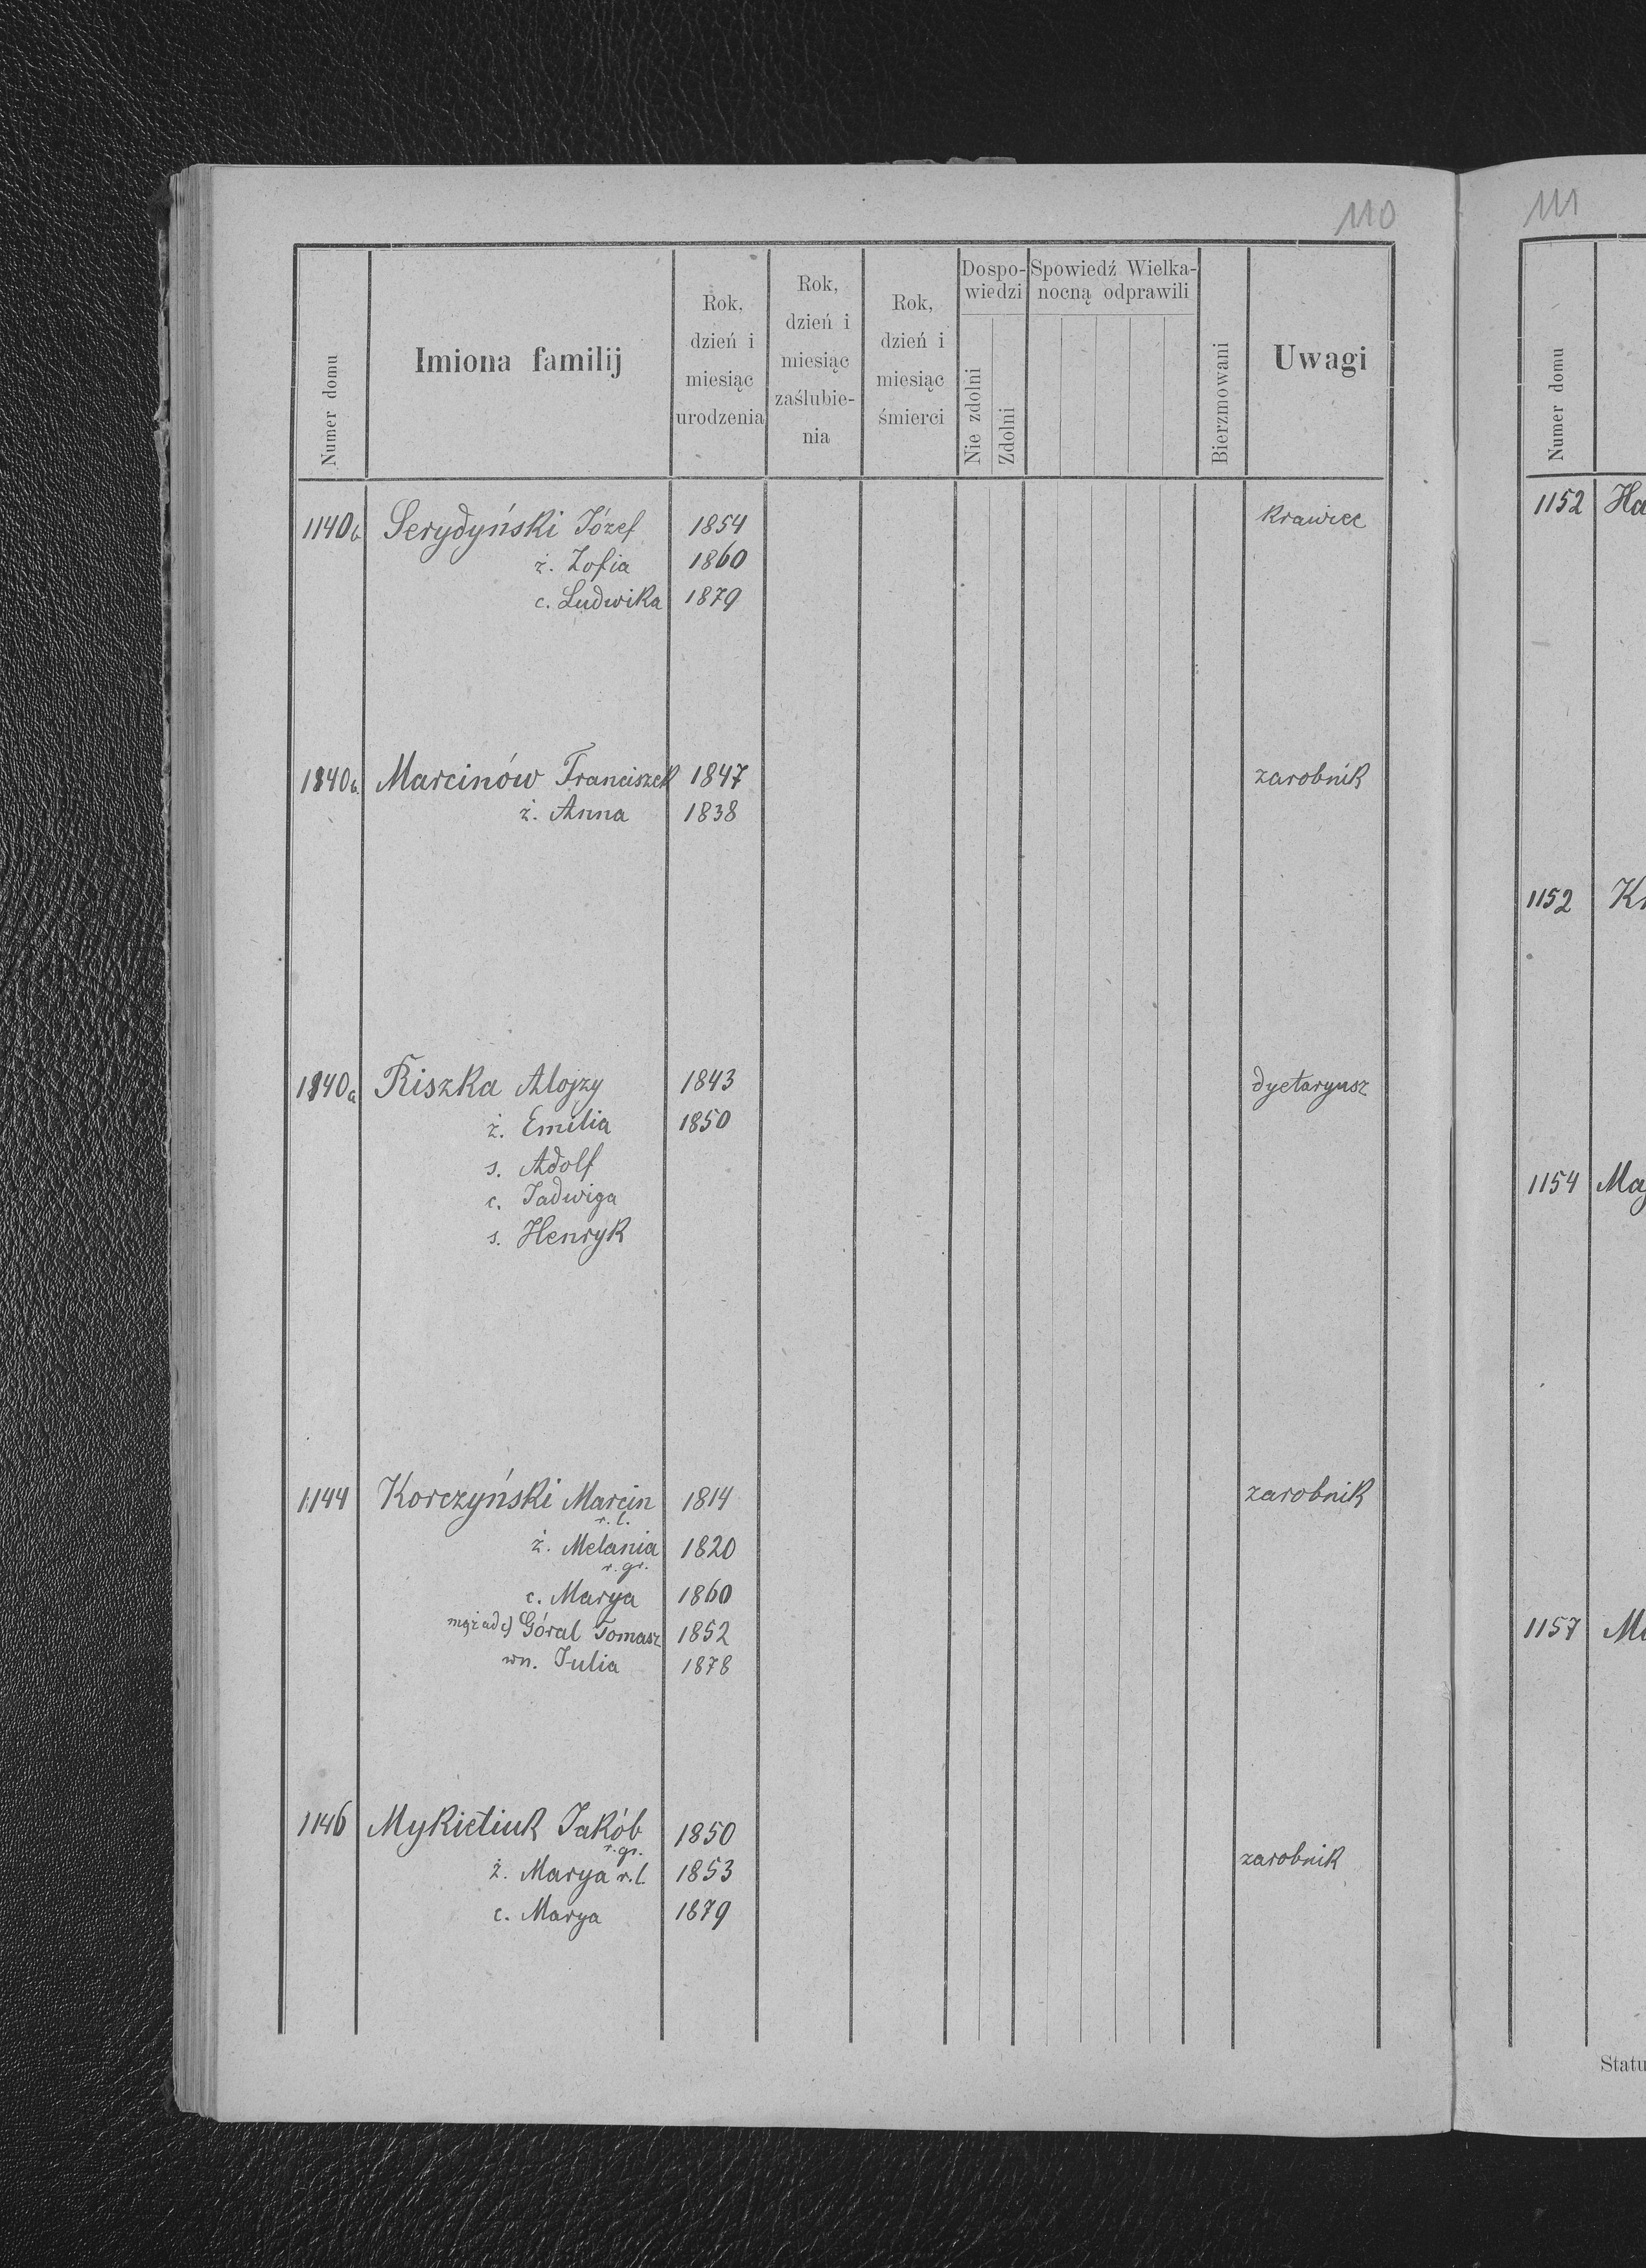 110
Numer domu
Imiona familij
Rok, dzień i miesiąc urodzenia
Rok, dzień i miesiąc zaślubie-nia
Rok, dzień i miesiąc śmierci
Dospo-wiedzi
Nie zdolni
Zdolni
Spowiedź Wielka-nocną odprawili
Bierzmowani
Uwagi
1140 Serydyński Józef 1854 krawiec
ż. Zofia 1860
c. Ludwika 1879
1140 Marcinów Franciszek 1847 zarobnik
ż. Anna 1838
1140a Riszka Alojzy 1843 dyetaryusz
ż. Emilia 1850
s. Adolf
c. Jadwiga
s. Henryk
1144 Korczyński Marcin 1814 zarobnik
r. l.
ż. Melania 1820
r. gr.
c. Marya 1860
mąż ad c) Góral Tomasz 1852
wn. Julia 1878
1146 Mykietiuk Jakób 1850
r. gr.
zarobnik
ż. Marya r. l. 1853
c. Marya 1879
111
Numer domu
1152 Ha
1152
1154 Maj
1157
Statu